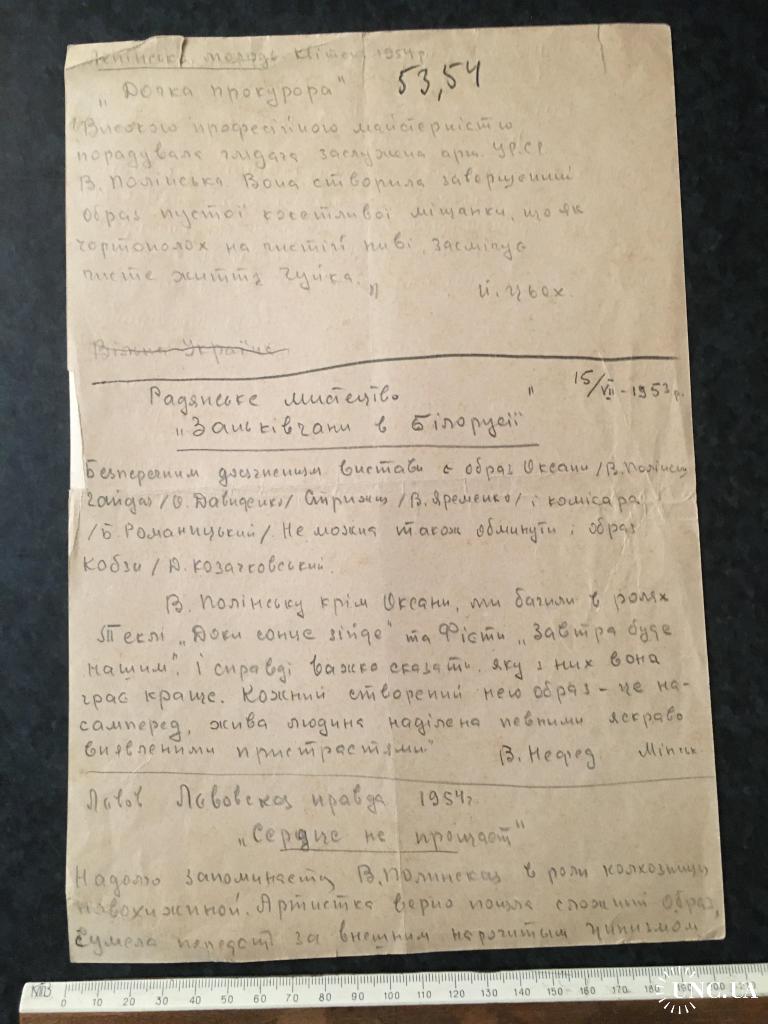 Ленінська молодь квітень 1954 р.
53,54
„Дочка прокурора"
Високою професійною майстерністю
порадувала глядача заслужена арт. УРСР
В. Полінська Вона створила завершений
образ пустої кокетливої міщанки, що як
чортополох на чистій ниві, засмічує
чисте життя Чуйка."
Й. Цьох.
Вільна Україна
Радянське мистецтво " 15/VII - 1953 р.
„Заньківчани в Білорусії"
Безперечним досягненням вистави є образ Оксани /В. Полінська/
Гайдая /О. Давиденко/ Стрижня /В. Яременко/ і комісара
/Б. Романицький/. Не можна також обминути і образ
Кобзи /Д. Козачковський.
В. Полінську крім Оксани, ми бачили в ролях
Теклі „Доки сонце зійде" та Фісти „Завтра буде
нашим". І справді важко сказати, яку з них вона
грає краще. Кожний створений нею образ - це на-
самперед, жива людина наділена певними яскраво
виявленими пристрастями"
В. Нефед Мінськ.
Львов Львовская правда 1954 г.
„Сердце не прощает"
Надолго запоминается В. Полинская в роли колхозницы
. Артистка верно поняла сложный образ,
сумела передать за внешним нарочитым цинизмом
0 10 20 30 40 50 60 70 80 90 100 110 120 130 140 150 160 170 180 190
UNC.UA